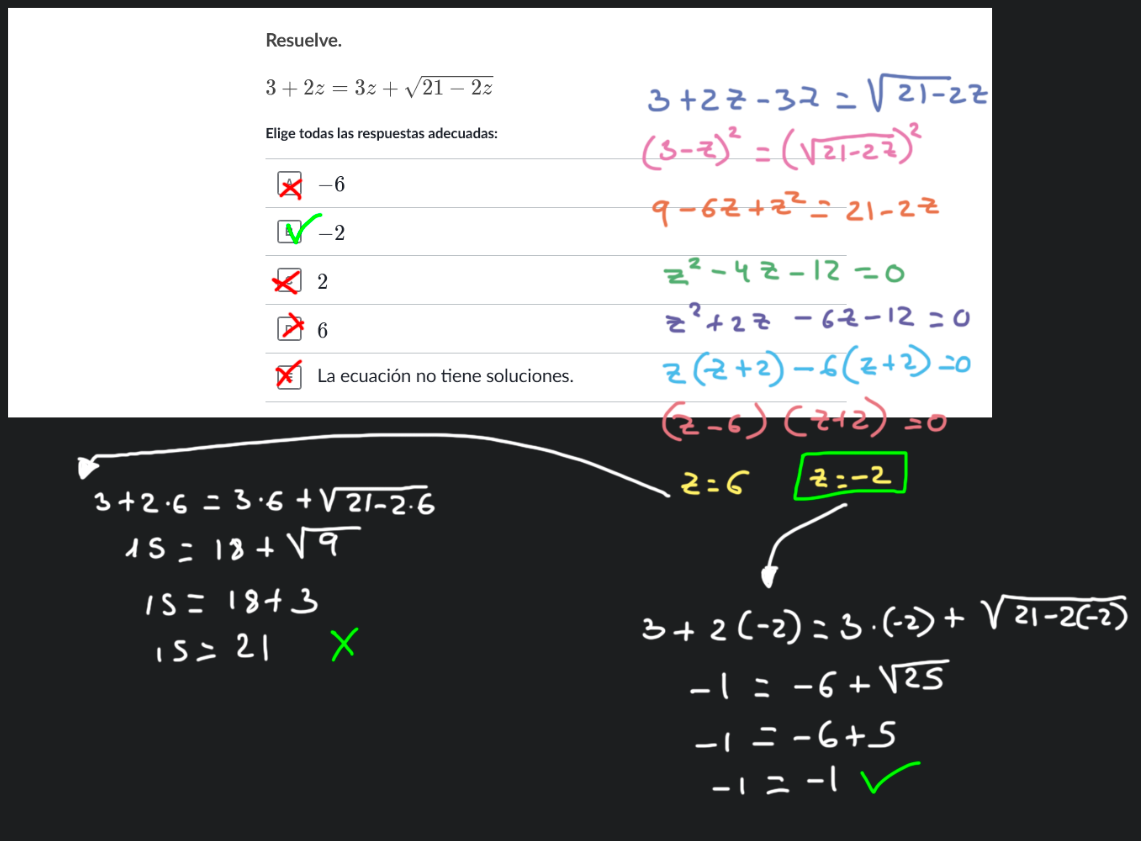 Resuelve.
3 + 2z = 3z + √(21 − 2z)
Elige todas las respuestas adecuadas:
−6
−2
2
6
La ecuación no tiene soluciones.
3 + 2z - 3z = √21-2z
(3-z)² = (√21-2z)²
9 - 6z + z² = 21 - 2z
z² - 4z - 12 = 0
z² + 2z - 6z - 12 = 0
z(z+2) - 6(z+2) = 0
(z-6) (z+2) = 0
z = 6 z = -2
3 + 2·6 = 3·6 + √21-2·6
15 = 18 + √9
15 = 18 + 3
15 = 21 X
3 + 2(-2) = 3·(-2) + √21-2(-2)
-1 = -6 + √25
-1 = -6 + 5
-1 = -1 ✓